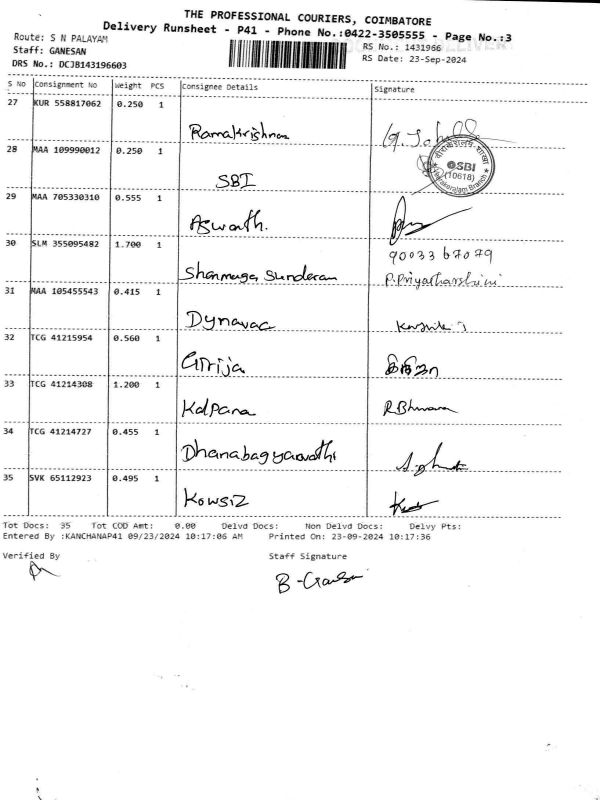 THE PROFESSIONAL COURIERS, COIMBATORE
Delivery Runsheet - P41 - Phone No.:0422-3505555 - Page No.:3
Route: S N PALAYAM
Staff: GANESAN
DRS No.: DCJB143196603
RS No.: 1431966
RS Date: 23-Sep-2024
S No Consignment No Weight PCS Consignee Details Signature
27 KUR 558817062 0.250 1
Ramakrishnan
28 MAA 109990012 0.250 1
SBI
SBI
(10618)
29 MAA 705330310 0.555 1
Aswath.
30 SLM 355095482 1.700 1
9003367079
Shanmuga Sunderam P.Priyatharshini
31 MAA 105455543 0.415 1
Dynavac
32 TCG 41215954 0.560 1
Girija கிரிஜா
33 TCG 41214308 1.200 1
Kalpana R Bhuvana
34 TCG 41214727 0.455 1
Dhanabagyavathi
35 SVK 65112923 0.495 1
Kowsiz
Tot Docs: 35 Tot COD Amt: 0.00 Delvd Docs: Non Delvd Docs: Delvy Pts:
Entered By :KANCHANAP41 09/23/2024 10:17:06 AM Printed On: 23-09-2024 10:17:36
Verified By Staff Signature